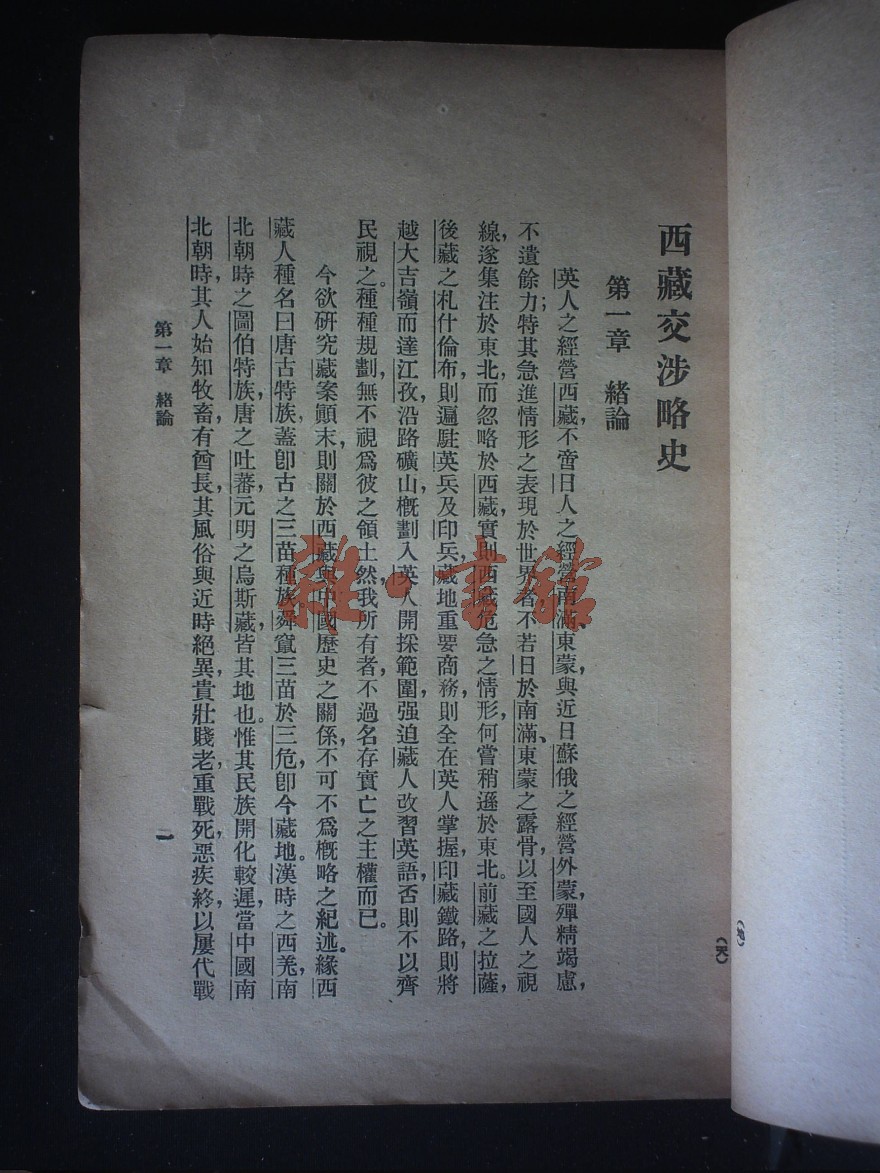 西藏交涉略史
第一章　緒論
英人之經營西藏，不啻日人之經營南滿、東蒙，與近日蘇俄之經營外蒙，殫精竭慮，
不遺餘力；特其急進情形之表現於世界者不若日於南滿、東蒙之露骨，以至國人之視
線，遂集注於東北，而忽略於西藏，實則西藏危急之情形，何嘗稍遜於東北。前藏之拉薩，
後藏之札什倫布，則遍駐英兵及印兵，藏地重要商務，則全在英人掌握，印藏鐵路，則將
越大吉嶺而達江孜，沿路礦山概劃入英人開採範圍，强迫藏人改習英語，否則不以齊
民視之。種種規劃，無不視爲彼之領土，然我所有者，不過名存實亡之主權而已。
今欲研究藏案顚末，則關於西藏與中國歷史之關係，不可不爲概略之紀述。緣西
藏人種名曰唐古特族，蓋卽古之三苗種族，舜竄三苗於三危，卽今藏地。漢時之西羌，南
北朝時之圖伯特族，唐之吐蕃，元明之烏斯藏，皆其地也。惟其民族開化較遲，當中國南
北朝時，其人始知牧畜，有酋長，其風俗與近時絕異，貴壯賤老，重戰死，惡疾終，以屢代戰
第一章　緒論
一
（天）
（地）
雜·書館